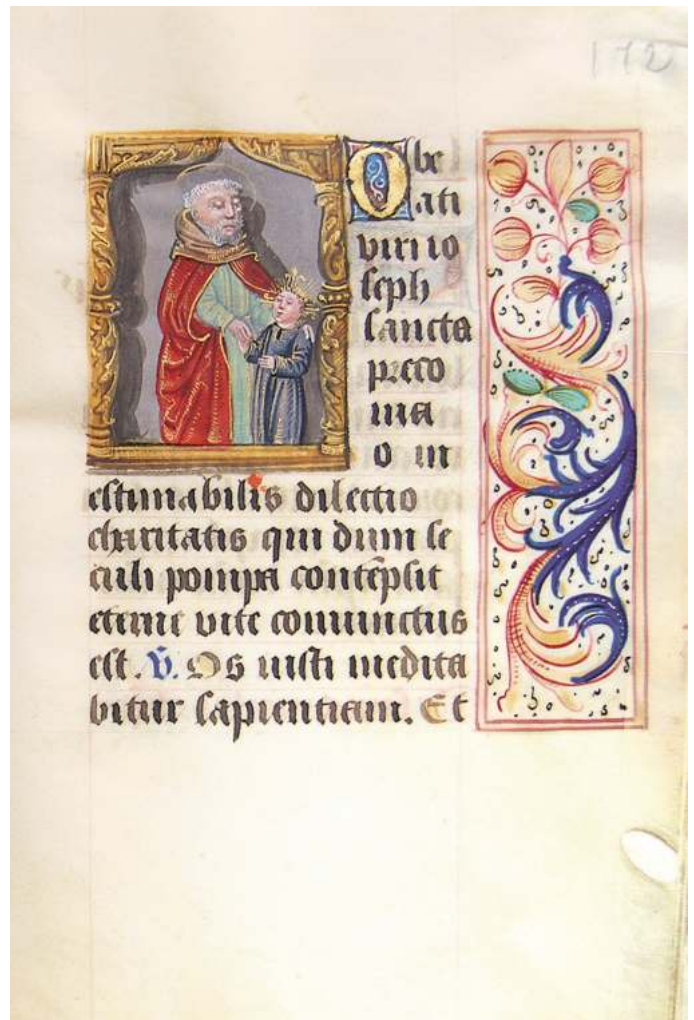 172
O be
ati
viri io
seph
sancta
preco
nia
o in
estimabilis dilectio
charitatis qui dum se
culi pompa contēpsit
eterne vite coniunctus
est. V̄. Os iusti medita
bitur sapientiam. Et